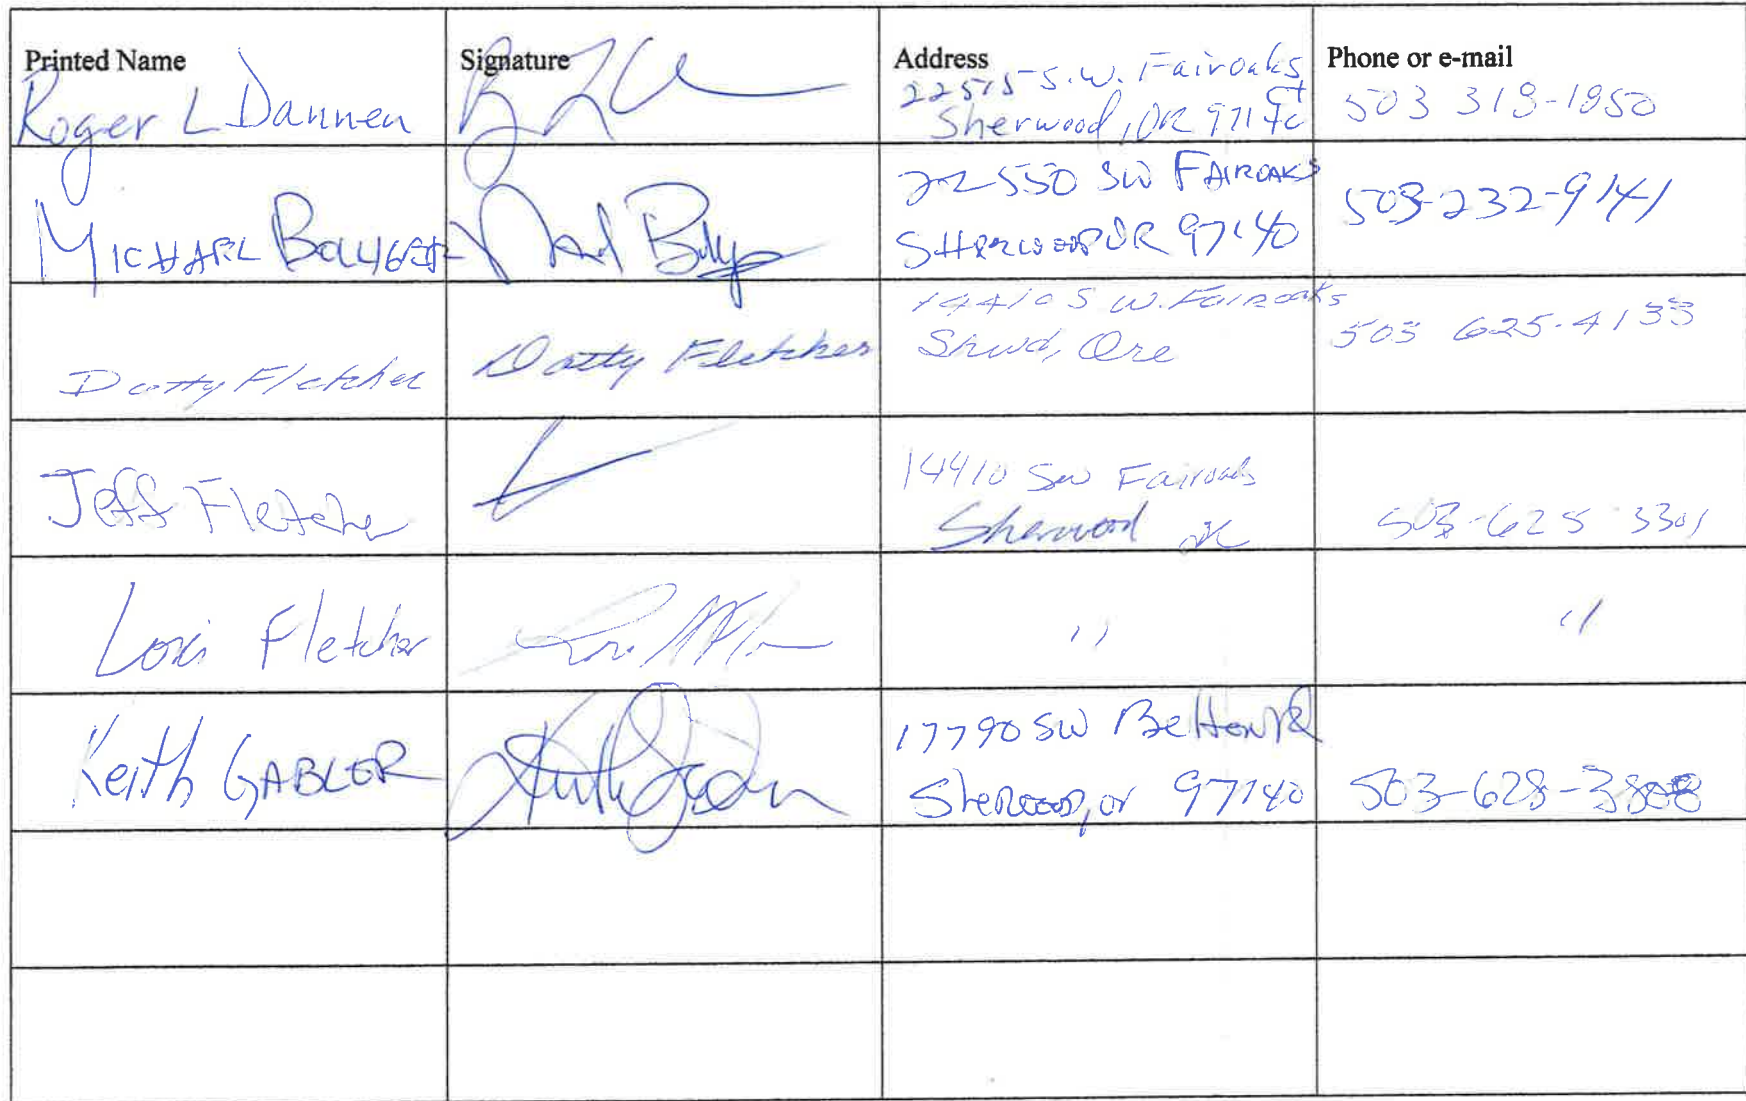 Printed Name Signature Address Phone or e-mail
Roger L Dannen
22515 S.W. Fairoaks Ct
Sherwood, OR 97140
503 318-1850
MICHAEL
22550 SW FAIROAKS
SHERWOOD OR 97140
503-232-9141
Dotty Fletcher Dotty Fletcher
14410 S W. Fairoaks
Shwd, Ore
503 625-4133
Jeff Fletcher
14410 SW Fairoaks
Sherwood OR
503-625 3301
Lori Fletcher
" "
Keith GABLER
17790 SW Belton Rd
Sherwood, or 97140
503-628-3808